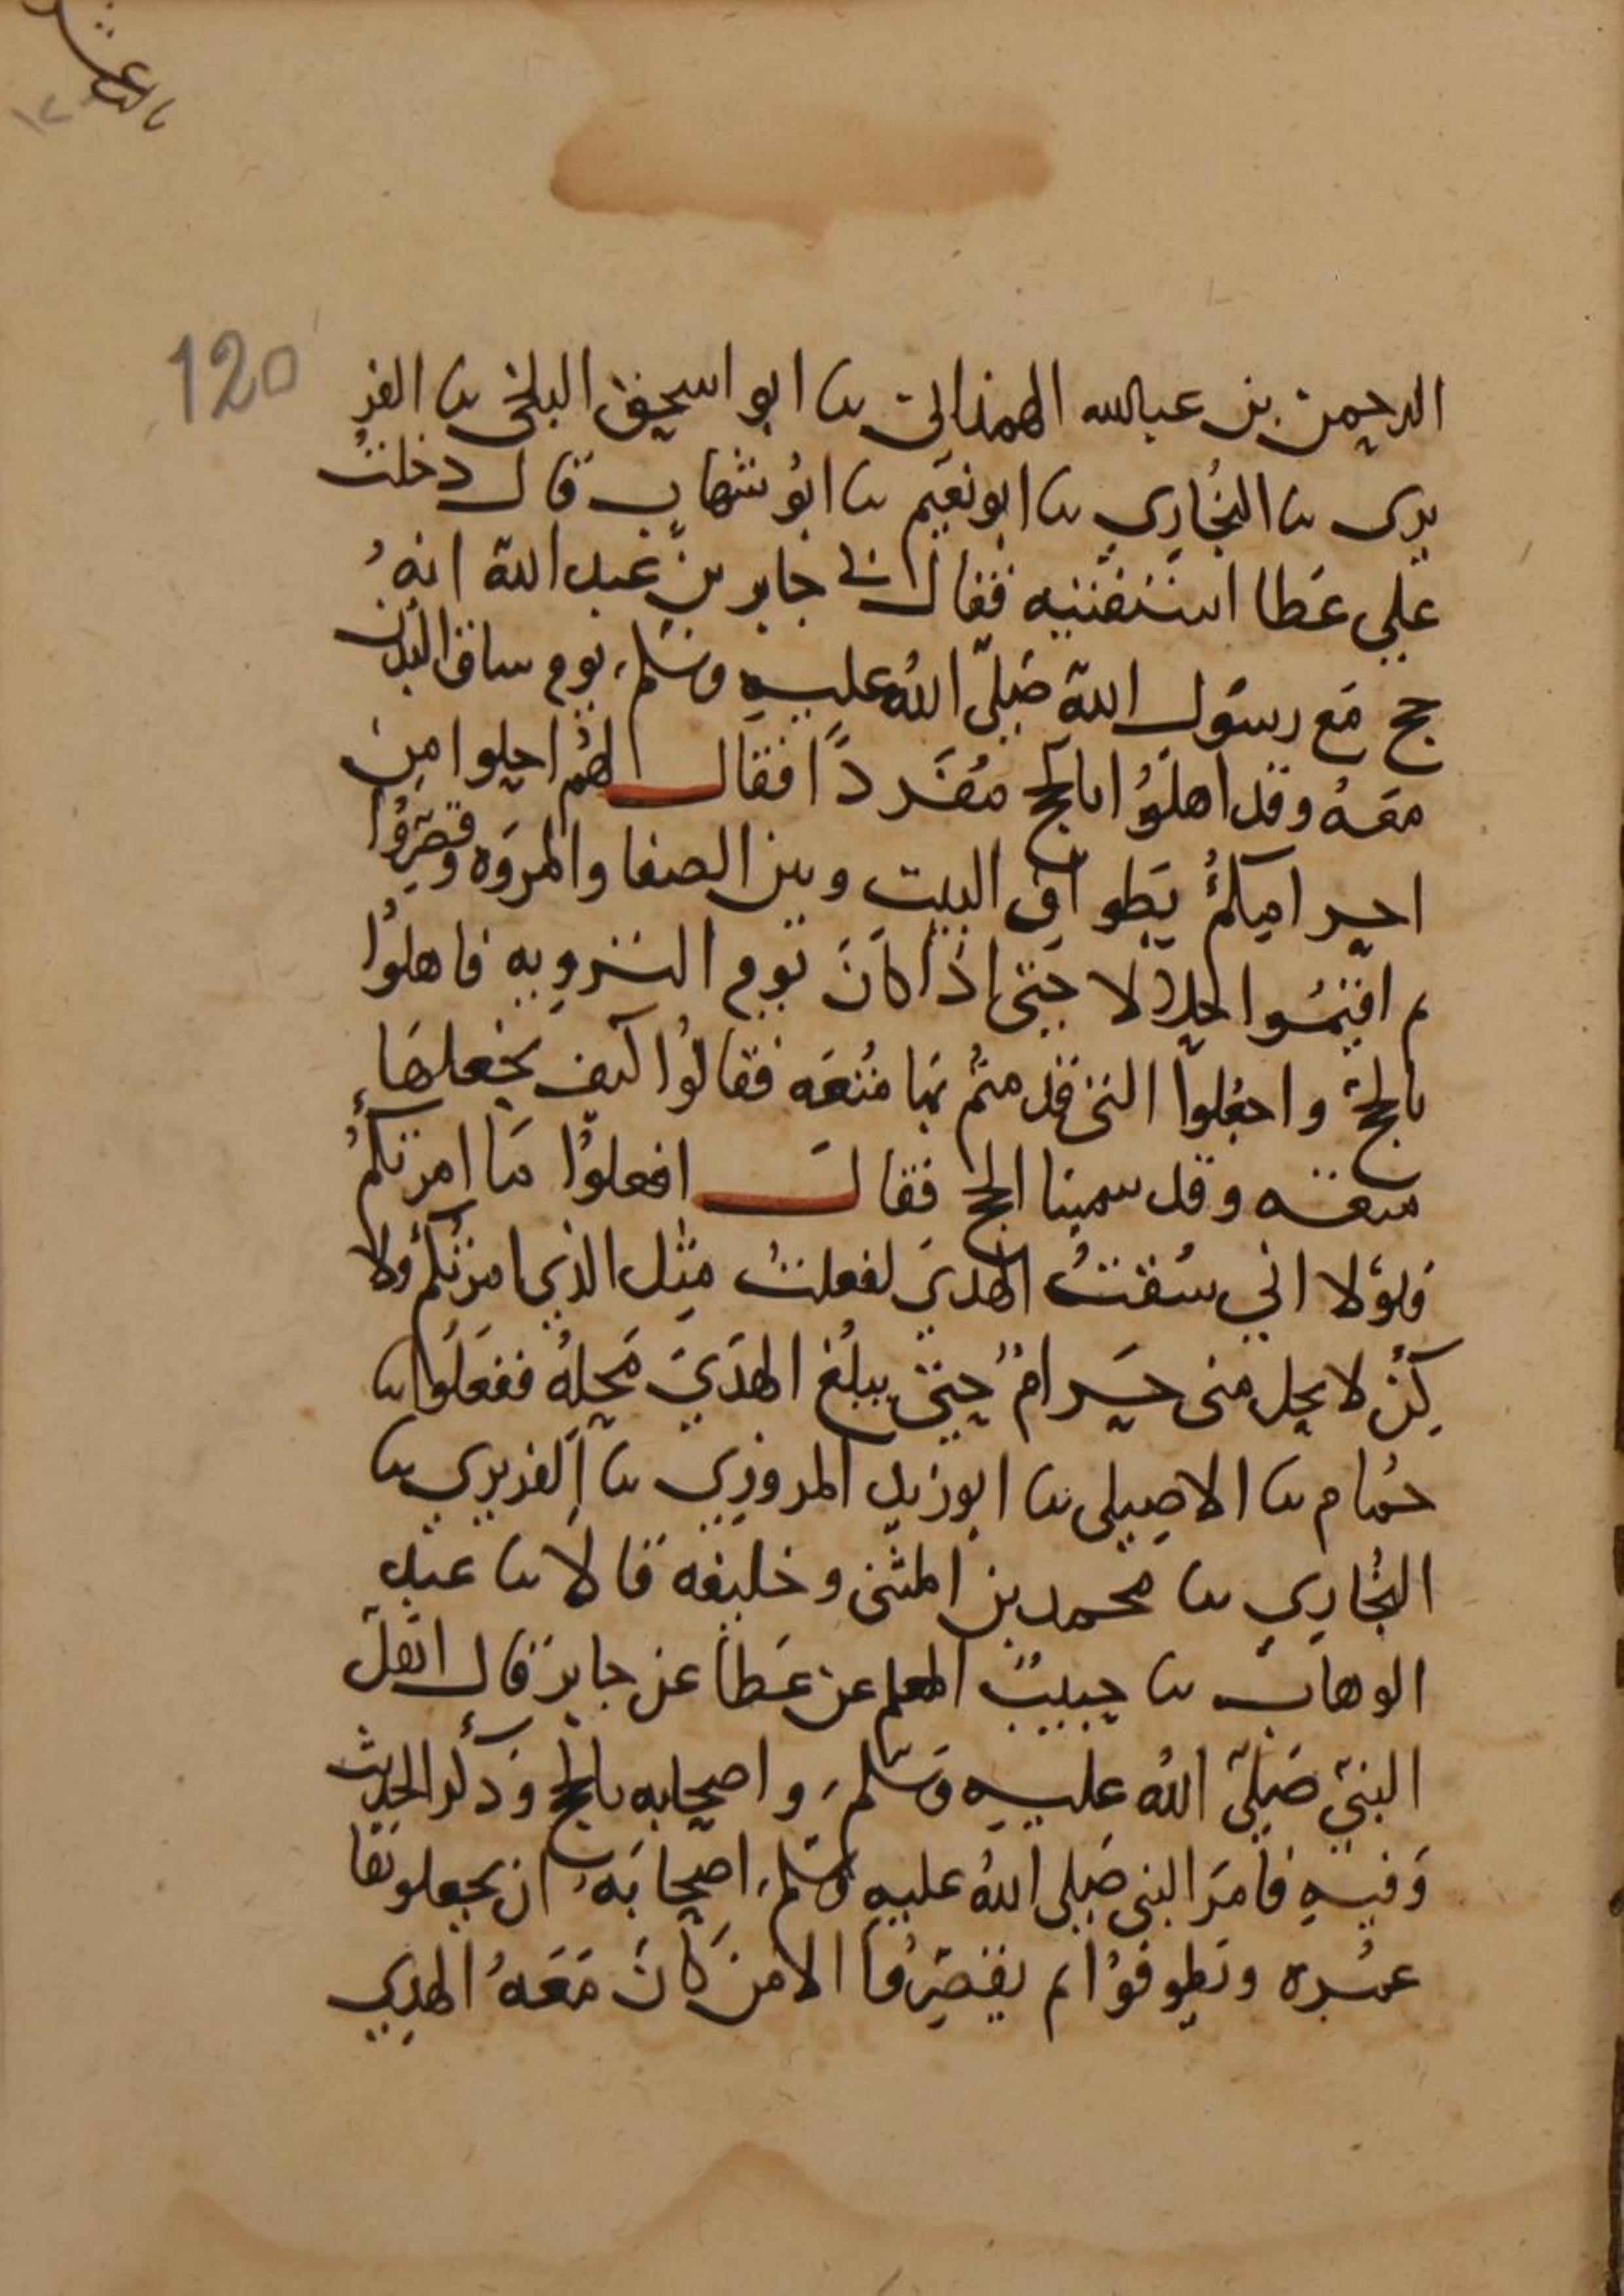 120
الرحمن بن عبدالله الهمذاني نا ابو اسحق البلخي نا الفر
بري نا البُخاري نا ابو نعَيم نا ابُو شهابٍ قال دخلتُ
على عَطا استفتيه فقال لي جابر بن عبد الله انهُ
حج مَع رسَول الله صَلىّ اللهُ عليه وسَلم يوم ساق البُدن
معَهُ وقد اهلوُا بالحج مُفرَداً فقال لهُم احلوا مِن
احرامِكمُ بطواف البيت وبين الصفا والمروَه وقصّرُوا
ثم اقيمُوا حلالا حَتى اذا كانَ يَوم الترويه فاهلوُا
بالحج واجعَلوا التي قدمتمُ بهَا مُتعَه فقالوُا كيف نجعلهَا
متعَه وقد سمينا الحج فقال افعلوُا مَا امرتكمُ
فلوَلا اني سُقتُ الهَديَ لفعلتُ مِثل الذي امرتُكمُ ولا
كِنْ لا يحل مني حَرامٌ حتىَ يبلُغ الهَديَ مَحِلهُ ففعَلوُا نا
حمُام نا الاصِيلي نا ابو زيد المروزي نا الفربري نا
البخُاري نا محمد بن المثنى وخليفه قالا نا عبد
الوهاب نا حبيبُ المعلم عن عَطا عن جابرَ قال اهَلّ
النبيّ صَلىّ اللهُ عليه وسَلم واصحابه بالحج وَذكر الحديث
وَفيهِ فامَر النبي صَلى اللهُ عليه وسَلم اصحابَهُ ان يجعلوهَا
عمُره ويَطوفوُا ثم يقصّرُوا الا من كانَ مَعَهُ الهدي